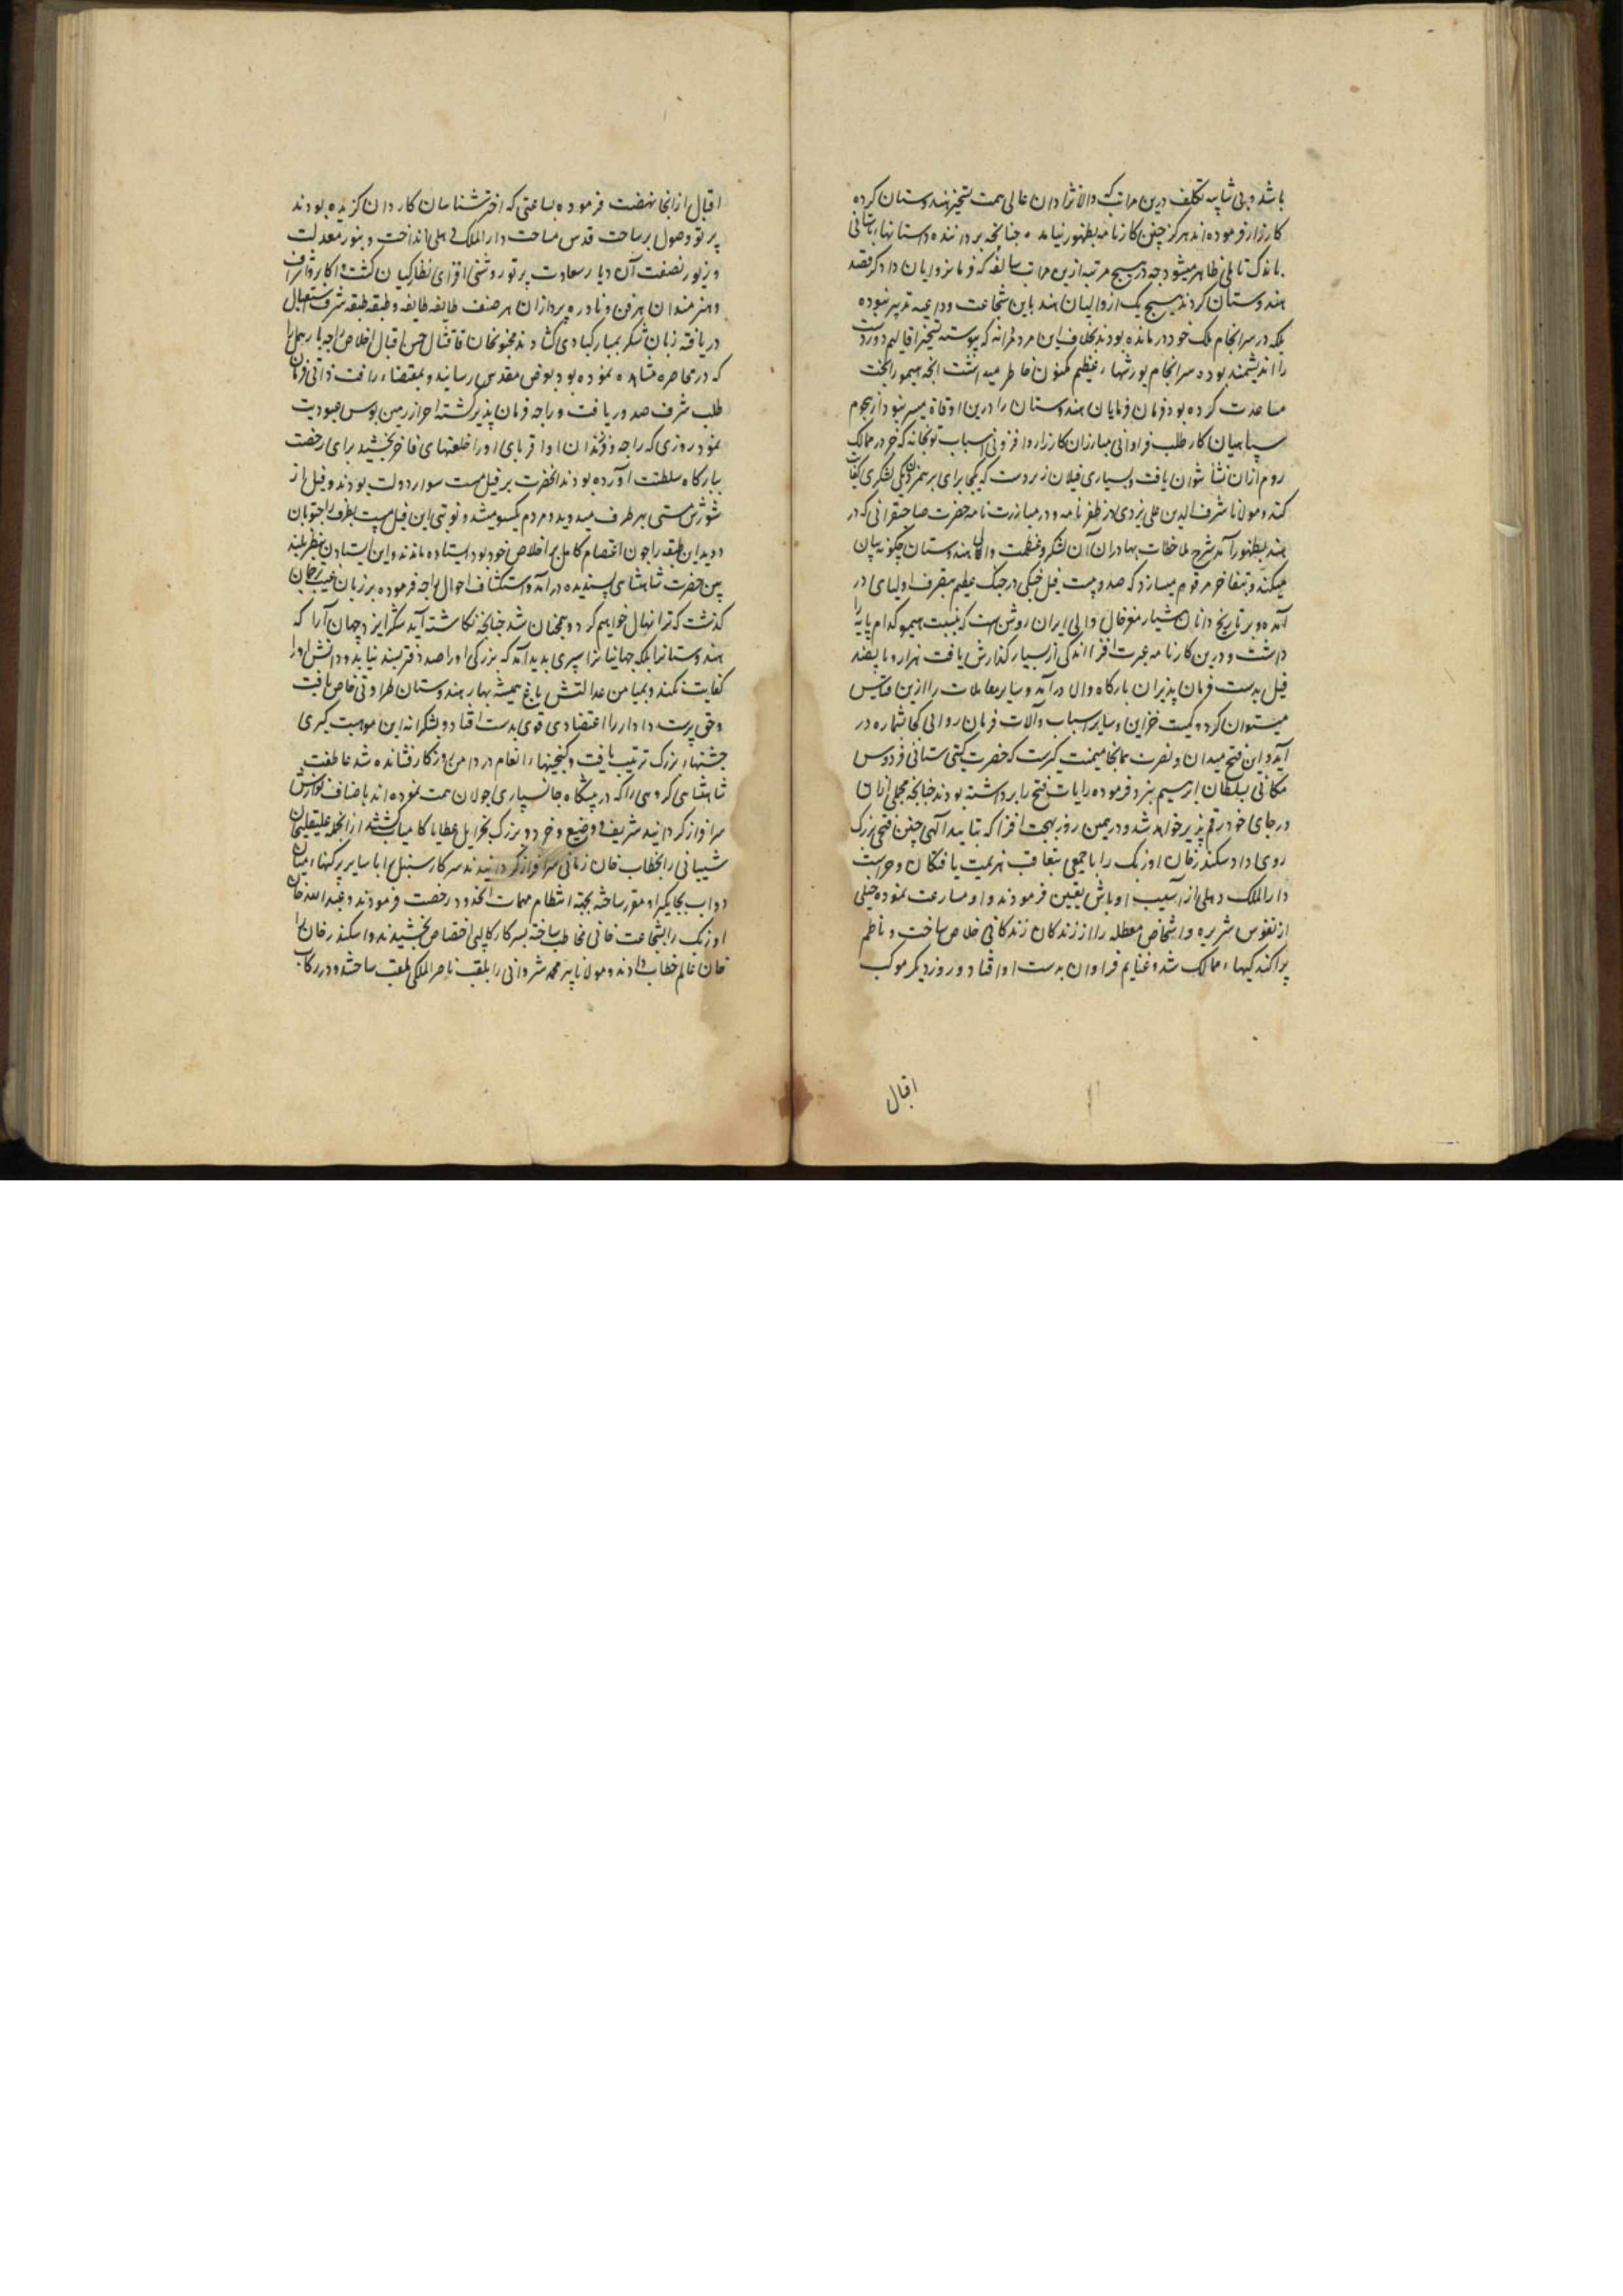 باشد و بی شایبه تکلف درین مراتب که والانژادان عالی همت تسخیر هندوستان کرده
کارزار فرموده اند هرگز چنین کارنامه بظهور نیامده چنانچه برداننده داستانهای باستانی
باندک تاملی ظاهر میشود چه در هیچ مرتبه ازین مراتب سالفه که فرمانروایان دادگر قصد
هندوستان کردند هیچ یک از والیان هند باین شجاعت و داعیه تدبیر نبوده
بلکه در سرانجام ملک خود درمانده بودند بخلاف این مرد مردانه که پیوسته تسخیر اقالیم دوردست
را اندیشمند بوده سرانجام یورشهاء عظیم مکنون خاطر میداشت آنچه هیمو را بخت
مساعدت کرده بود فرمان فرمایان هندوستان را درین اوقات میسر نبود از هجوم
سپاهیان کار طلب فراوانی مبارزان کارزار و افزونی اسباب توپخانه که جز در ممالک
روم ازان نشان نتوان یافت و بسیاری فیلان زبردست که یکی برای برهمزدگی لشکری کفایت
کند و مولانا شرف الدین علی یزدی در ظفرنامه و در مبارزت نامه حضرت صاحبقرانی که در
هند بظهور آمد شرح ملاحظات بهادران آن لشکر و عظمت والی هندوستان چگونه بیان
میکند و بتفاخر مرقوم میسازد که صد و بیست فیل جنگی در جنگ عظیم بتصرف اولیای در
آمده و بر تاریخ دانان هشیار مغز حال والی ایران روشن است که بنسبت هیمو کدام پایه را
داشت و درین کارنامه عبرت افزا اندکی از بسیار گذارش یافت هزار و پانصد
فیل بدست فرمان پذیران بارگاه والا درآمد و سایر معاملات را ازین قیاس
میتوان کرد و کمیت خزاین و سایر اسباب و آلات فرمان روائی کجا شماره در
آید و این فتح میدان و نصرت همانجا میمنت گیرست که حضرت گیتی ستانی فردوس
مکانی بسلطان ابراهیم نبرد فرموده رایات فتح را برداشته بودند چنانچه مجملی ازان
در جای خود رقم پذیر خواهد شد و در همین روز بهجت افزا که بتائید الهی چنین فتحی بزرگ
روی داد سکندر خان اوزبک را با جمعی بتعاقب هزیمت یافتگان و حراست
دارالملک دهلی از آسیب اوباش تعیین فرمودند و او مسارعت نموده خیلی
از نفوس شریره و اشخاص معطله را از زندگان زندگانی خلاص ساخت و ناظم
پراکندگیهاء ممالک شد و غنایم فراوان بدست او افتاد و روز دیگر موکب
اقبال
اقبال ازانجا نهضت فرموده بساعتی که اخترشناسان کاردان گزیده بودند
پرتو وصول بر ساحت قدس مساحت دارالملک دهلی انداخت و بنور معدلت
و زیور نصفت آن دیار سعادت پرتو روشنی افزای نظارگیان گشت و اکابر و اشراف
و هنرمندان هر فن و نادره پردازان هر صنف طایفه طایفه و طبقه طبقه شرف استقبال
دریافته زبان شکر بمبارکبادی گشادند مجنونخان قاقشال حسن اقبال اخلاص راجه بارهمل را
که در محاصره مشاهده نموده بود بعرض مقدس رسانید و بمقتضاء رافت ذاتی فرمان
طلب شرف صدور یافت و راجه فرمان پذیر گشته احراز زمین بوس عبودیت
نمود روزی که راجه و فرزندان او و اقربای او را خلعتهای فاخر بخشیده برای رخصت
ببارگاه سلطنت آورده بودند آنحضرت بر فیل مست سوار دولت بودند و فیل از
شورش مستی بهر طرف میدوید و مردم یکسو میشدند نوبتی این فیل مست بطرف راجپوتان
دوید این طبقه را چون اعتصام کامل بر اخلاص خود بود ایستاده ماندند و این ایستادن بنظر بلند
بین حضرت شاهنشاهی پسندیده درآمد و استکشاف احوال راجه فرموده بر زبان غیب ترجمان
گذشت که ترا نهال خواهیم کرد و همچنان شد چنانچه نگاشته آید شکر ایزد جهان آرا که
هندوستانرا بلکه جهانیانرا سپهری پدید آمد که بزرگی او را صد دفتر بسند نیاید و دانش او را
کفایت نکند و بمیامن عدالتش باغ همیشه بهار هندوستان طراوتی خاص یافت
و حق پرست دادار را اعتضادی قوی بدست افتاد و بشکرانه این موهبت کبری
جشنهاء بزرگ ترتیب یافت و گنجینهاء انعام در دامن روزگار فشانده شد عاطفت
شاهنشاهی گروهی را که در پیشگاه جانسپاری جولان همت نموده اند باضاف نوازش
سرافراز گردانید شریف و وضیع و خرد و بزرگ بجزایل عطایا کامیاب گشتند ازانجمله علیقلیخان
شیبانی را بخطاب خان زمانی سرافراز گردانیدند سرکار سنبل را با سایر پرگنهاء میان
دوآب بجایگیر او مقرر ساخته بجهته انتظام مهمات آنحدود رخصت فرمودند و عبدالله خان
اوزبک را بشجاعت خانی مخاطب ساخته بسرکار کالپی اختصاص بخشیدند و اسکندر خان را
خان عالم خطاب دادند و مولانا پیر محمد شروانی را بلقب ناصرالملکی ملقب ساخته در رکاب